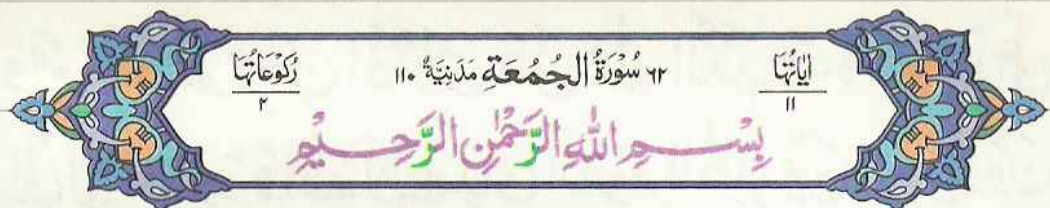 اٰيَاتُهَا ١١
٦٢ سُوْرَةُ الْجُمُعَةِ مَدَنِيَّةٌ ١١٠
رُكُوْعَاتُهَا ٢
بِسْمِ اللّٰهِ الرَّحْمٰنِ الرَّحِيْمِ